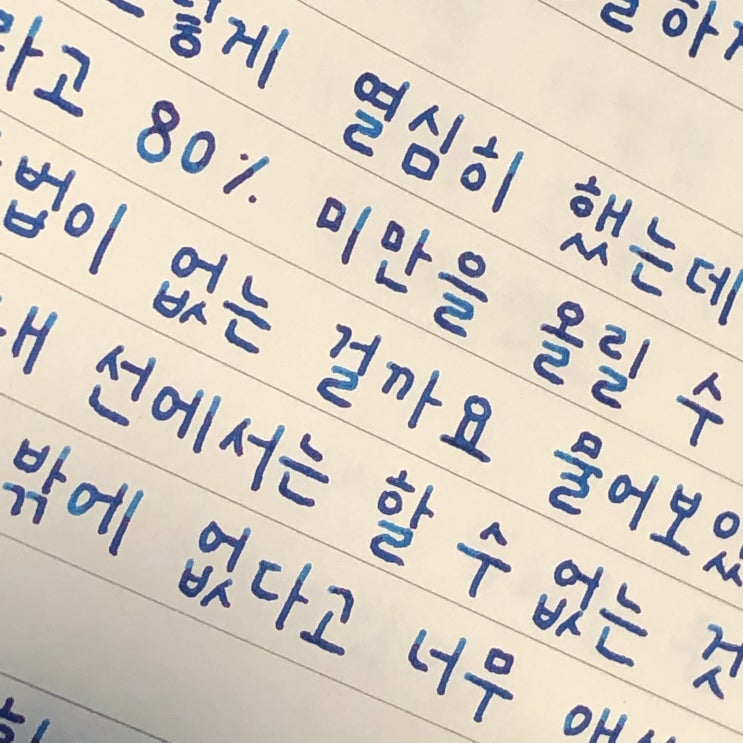 열심히 했는데
80% 미만을 올릴 수
없는 걸까요 물어보
선에서는 할 수 없는 것
밖에 없다고 너무